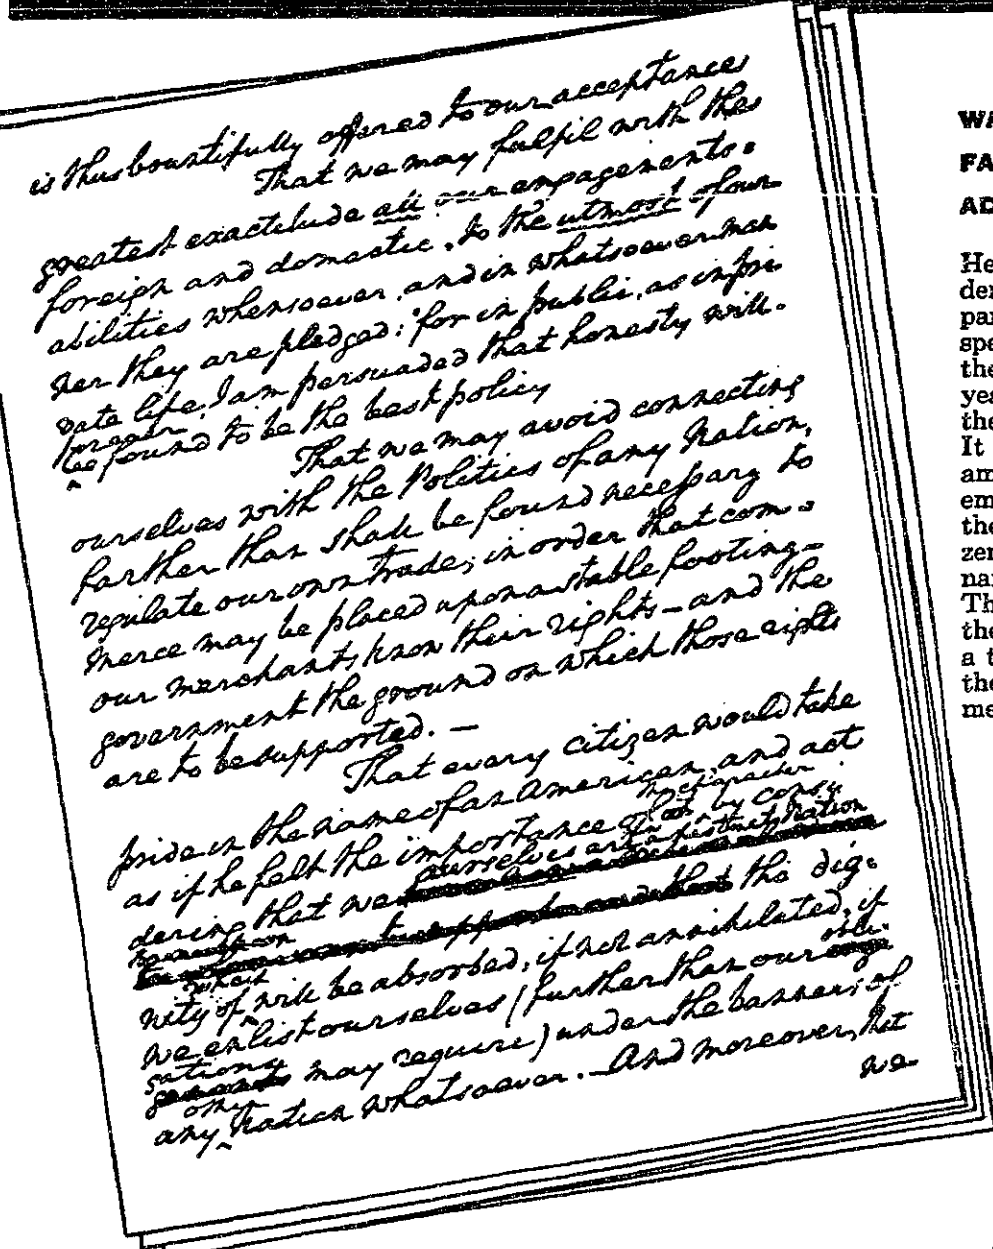 is thus bountifully offered to our acceptance
That we may fulfil with the
greatest exactitude all our engagements.
foreign and domestic, to the utmost of our
abilities whensoever, and in whatsoever man
ner they are pledged: for in public, as in pri
vate life, I am persuaded that honesty will.
forever
be found to be the best policy
That we may avoid connecting
ourselves with the Politics of any Nation,
farther than shall be found necessary to
regulate our own trade; in order that com-
merce may be placed upon a stable footing-
our merchants know their rights - and the
government the ground on which those rights
are to be supported. -
That every citizen would take
pride in the name of an American, and act
as if he felt the importance of
character by consi
dering that we
ourselves are a distinct Nation
the dig-
nity of which will be absorbed, if not annihilated, if
we enlist ourselves (further than our obli-
gations may require) under the banners of
any other Nation whatsoever. And moreover, that
we
WA
FA
AD
He
der
par
spe
the
yea
the
It
am
em
the
zen
nar
Th
the
a t
the
me